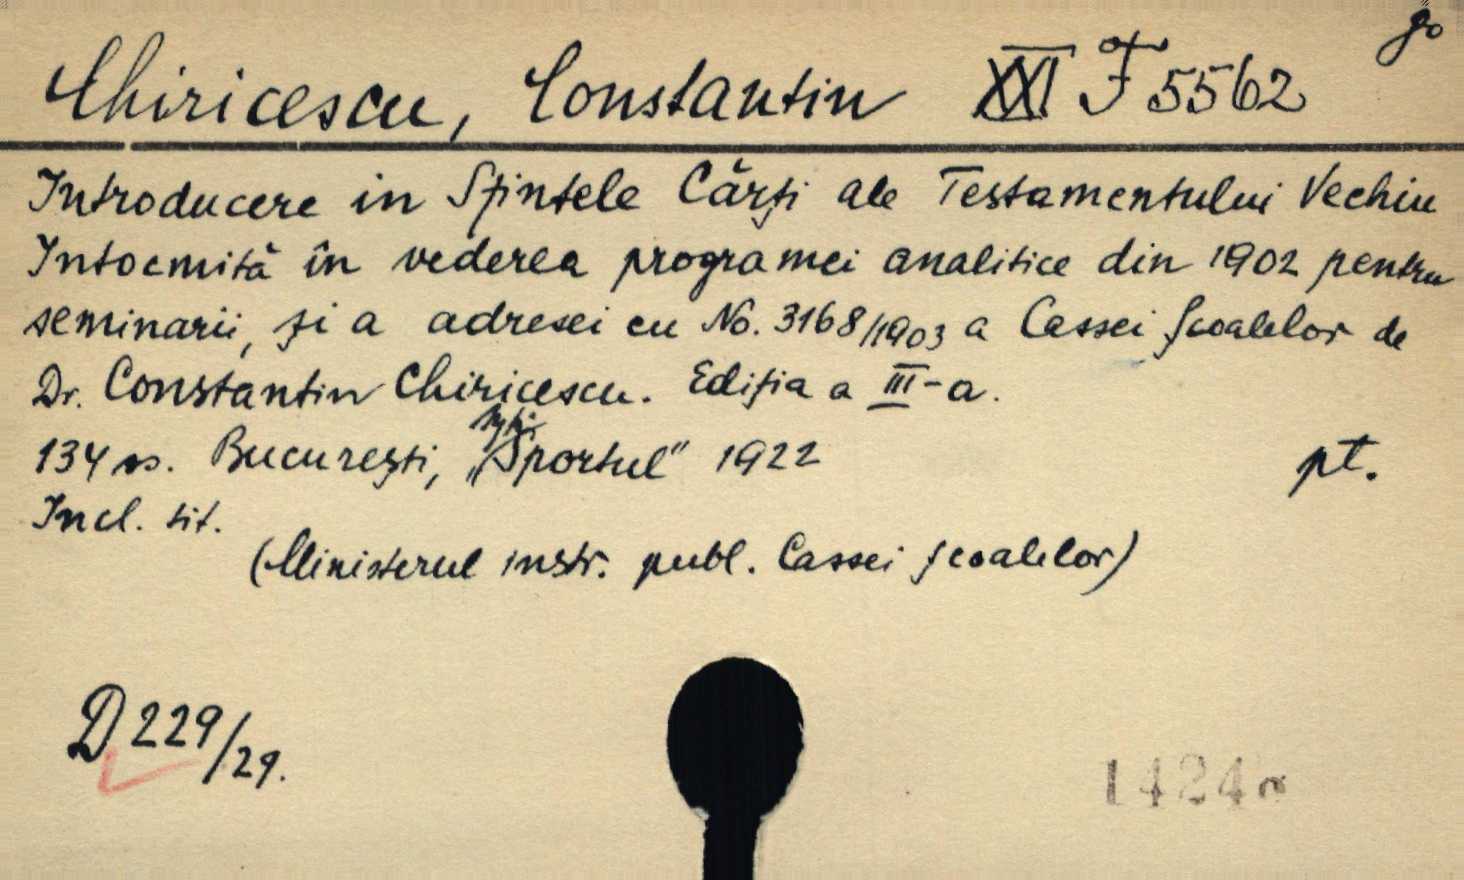 go
Chiricescu, Constantin XXI F 5562
Introducere in Sfintele Cărți ale Testamentului Vechiu
Intocmită în vederea programei analitice din 1902 pentru
seminarii, și a adresei cu No. 3168/1903 a Cassei Școalelor de
Dr. Constantin Chiricescu. Ediția a III-a.
134 s. București, „Sportul" 1922
pt.
Incl. tit.
(Ministerul instr. publ. Cassei școalelor)
D 229/29.
1424